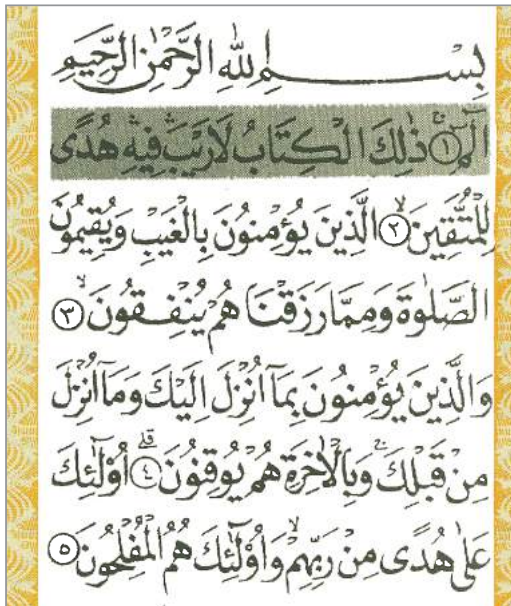 بِسْــــــمِ اللهِ الرَّحْمٰنِ الرَّحِيمِ
الٓمٓ ۚ ﴿١﴾ ذٰلِكَ الْكِتَابُ لَا رَيْبَ ۛ فِيهِ ۛ هُدًى
لِلْمُتَّقِينَ ۙ ﴿٢﴾ الَّذِينَ يُؤْمِنُونَ بِالْغَيْبِ وَيُقِيمُونَ
الصَّلٰوةَ وَمِمَّا رَزَقْنَا هُمْ يُنْفِقُونَ ۙ ﴿٣﴾
وَالَّذِينَ يُؤْمِنُونَ بِمَٓا اُنْزِلَ اِلَيْكَ وَمَٓا اُنْزِلَ
مِنْ قَبْلِكَ ۚ وَبِالْاٰخِرَةِ هُمْ يُوقِنُونَ ۗ ﴿٤﴾ اُو۬لٰٓئِكَ
عَلٰى هُدًى مِنْ رَبِّهِمْ ۙ وَاُو۬لٰٓئِكَ هُمُ الْمُفْلِحُونَ ﴿٥﴾